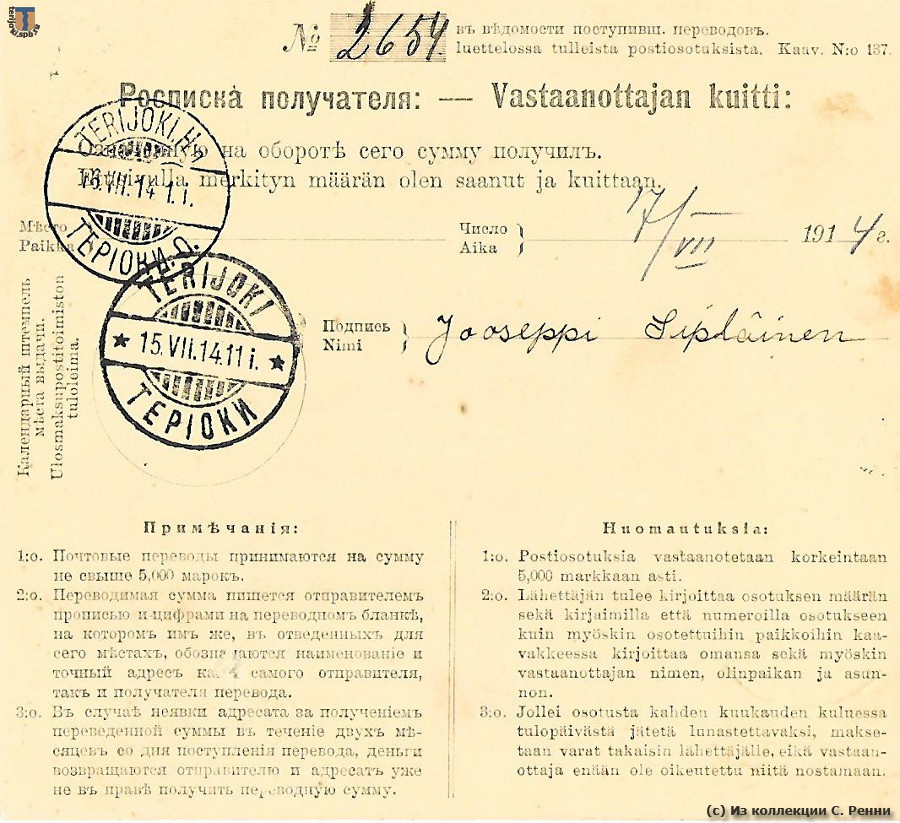 terijoki.spb.ru
№ 2654 въ вѣдомости поступивш. переводовъ.
luettelossa tulleista postiosotuksista. Kaav. N:o 137.
Росписка получателя: — Vastaanottajan kuitti:
на оборотѣ сего сумму получилъ.
merkityn määrän olen saanut ja kuittaan.
Мѣсто
Paikka
Число
Aika
17/VII 1914 г.
TERIJOKI.H.
15.VII.14 1.i.
ТЕРІОКИ.О.
TERIJOKI
15.VII.14.11 i.
ТЕРІОКИ
Календарный штемпель
мѣста выдачи.
Ulosmaksupostitoimiston
tuloleima.
Подпись
Nimi
Jooseppi Sipläinen
Примѣчанія:
1:o. Почтовые переводы принимаются на сумму
не свыше 5,000 марокъ.
2:o. Переводимая сумма пишется отправителемъ
прописью и цифрами на переводномъ бланкѣ,
на которомъ имъ же, въ отведенныхъ для
сего мѣстахъ, обозначаются наименованіе и
точный адресъ какъ самого отправителя,
такъ и получателя перевода.
3:o. Въ случаѣ неявки адресата за полученіемъ
переведенной суммы въ теченіе двухъ мѣ-
сяцевъ со дня поступленія перевода, деньги
возвращаются отправителю и адресатъ уже
не въ правѣ получить переводную сумму.
Huomautuksia:
1:o. Postiosotuksia vastaanotetaan korkeintaan
5,000 markkaan asti.
2:o. Lähettäjän tulee kirjoittaa osotuksen määrän
sekä kirjaimilla että numeroilla osotukseen
kuin myöskin osotettuihin paikkoihin kaa-
vakkeessa kirjoittaa omansa sekä myöskin
vastaanottajan nimen, olinpaikan ja asun-
non.
3:o. Jollei osotusta kahden kuukauden kuluessa
tulopäivästä jätetä lunastettavaksi, makse-
taan varat takaisin lähettäjälle, eikä vastaan-
ottaja enään ole oikeutettu niitä nostamaan.
(c) Из коллекции С. Ренни